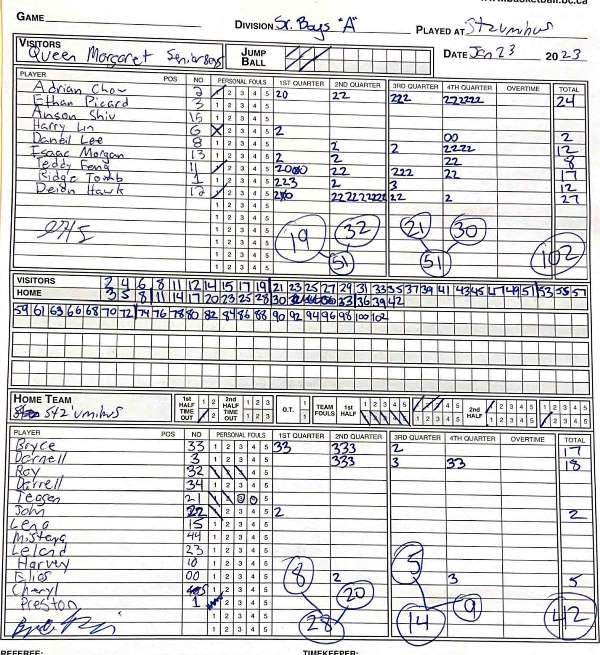 GAME
DIVISION Sr. Boys "A" PLAYED AT Stz'uminus
VISITORS
Queen Margaret Senior Boys
JUMP BALL
DATE Jan 23 2023
PLAYER POS NO PERSONAL FOULS 1ST QUARTER 2ND QUARTER 3RD QUARTER 4TH QUARTER OVERTIME TOTAL
Adrian Chow 2 1 2 3 4 5 20 22 222 222222 24
Ethan Picard 3 1 2 3 4 5
Anson Shiu 15 1 2 3 4 5
Harry Lin 6 1 2 3 4 5 2
Daniel Lee 8 1 2 3 4 5 00 2
Isaac Morgan 13 1 2 3 4 5 2 2 2 2222 12
Teddy Feng 11 1 2 3 4 5 22 8
Ridge Tomb 1 1 2 3 4 5 222 22 17
Deion Hawk 12 1 2 3 4 5 223 2 3 12
22 2 27
19 32 21 30
51 51 102
VISITORS 2 4 6 8 11 12 14 15 17 19 21 23 25 27 29 31 33 35 37 39 41 43 45 47 49 51 53 55 57
HOME 3 5 8 11 14 17 20 23 25 28 30 33 36 39 42
59 61 63 66 68 70 72 74 76 78 80 82 84 86 88 90 92 94 96 98 100 102
HOME TEAM
Stz'uminus
1st HALF TIME OUT 1 2 2nd HALF TIME OUT 1 2 3 O.T. 1 1 TEAM FOULS 1st HALF 1 2 3 4 5 2nd HALF 1 2 3 4 5
PLAYER POS NO PERSONAL FOULS 1ST QUARTER 2ND QUARTER 3RD QUARTER 4TH QUARTER OVERTIME TOTAL
Bryce 33 1 2 3 4 5 33 333 2 17
Darnell 3 1 2 3 4 5 333 3 33 18
Ray 32 1 2 3 4 5
Darrell 34 1 2 3 4 5
Teagen 21 1 2 3 4 5
John 22 1 2 3 4 5 2 2
Leno 15 1 2 3 4 5
Mistang 44 1 2 3 4 5
Leland 23 1 2 3 4 5
Harvey 10 1 2 3 4 5
Elias 00 1 2 3 4 5 2 3 5
Cheryl 1 2 3 4 5
Preston 1 1 2 3 4 5
8 20 5 9
28 14 42
REFEREE: TIMEKEEPER: